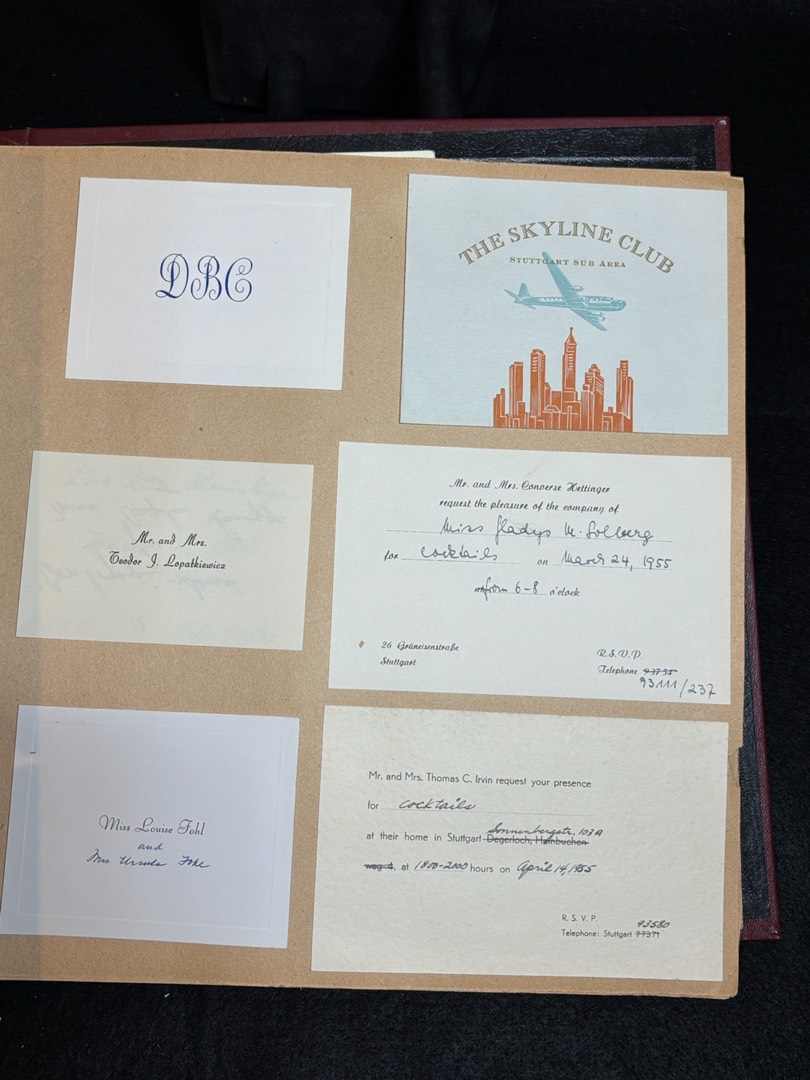 DBC
THE SKYLINE CLUB
STUTTGART SUB AREA
Mr. and Mrs.
Teodor J. Lopatkiewicz
Mr. and Mrs. Converse Hettinger
request the pleasure of the company of
Miss Gladys M. Solberg
for cocktails on March 24, 1955
from 6-8 o'clock
26 Grüneisenstraße
Stuttgart
R.S.V.P.
Telephone
93111/237
Miss Louise Fohl
and
Mrs Ursula Fohl
Mr. and Mrs. Thomas C. Irvin request your presence
for cocktails
Sonnenbergstr, 103A
at their home in Stuttgart-Degerloch, Hainbuchen-
weg 4, at 1800-2000 hours on April 14, 1955
R. S. V. P.
93580
Telephone: Stuttgart 77371